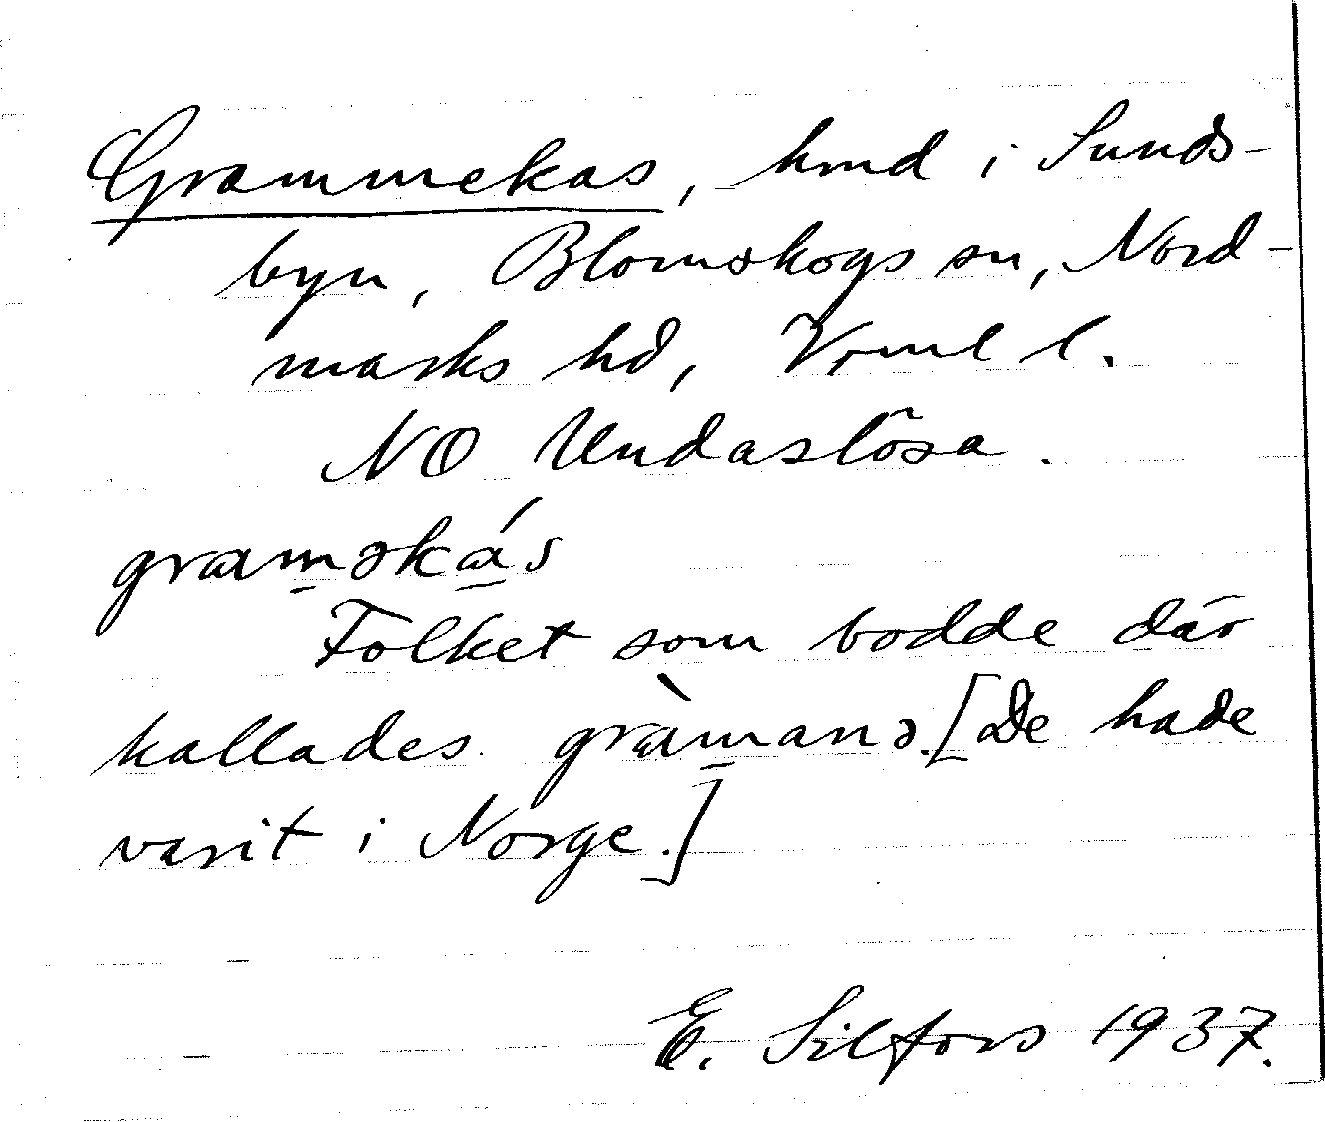 Grammekas, hmd i Sunds-
byn, Blomskogs sn, Nord-
marks hd, Vrml l.
NO Undaslösa.
gram̲əká̲s
Folket som bodde där
kallades gràm̲anə. [De hade
varit i Norge.]
E. Silfors 1937.